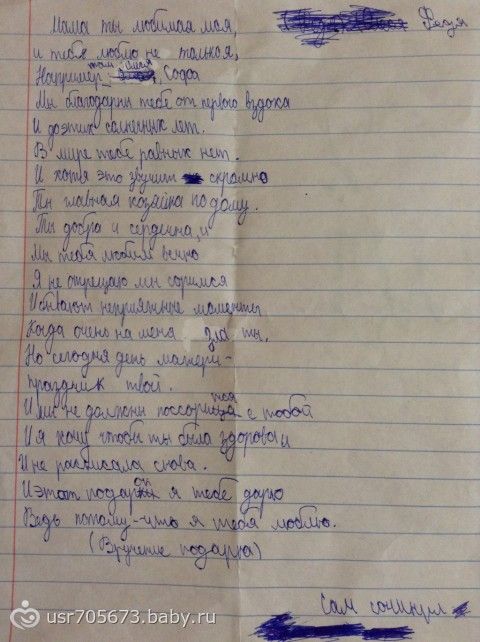 Мама ты любимая моя,
Федя
и тебя люблю не только я,
Например там Софа
Мы благодарны тебе от первого вздоха
И до этих солнечных лет.
В мире тебе равных нет.
И хотя это звучит скромно
Ты главная хозяйка по дому.
Ты добра и сердечна, и
Мы тебя любим вечно
Я не отрецаю мы соримся
И бывают неприятные моменты
Когда очень на меня зла ты.
Но сегодня день матери-
праздник твой.
И мы не должны поссориться с тобой
И я хочу чтобы ты была здорова и
И не расписала снова.
И этот подарок я тебе дарю
Ведь потому-что я тебя люблю.
(Вручение подарка)
Сам сочинил
usr705673.baby.ru